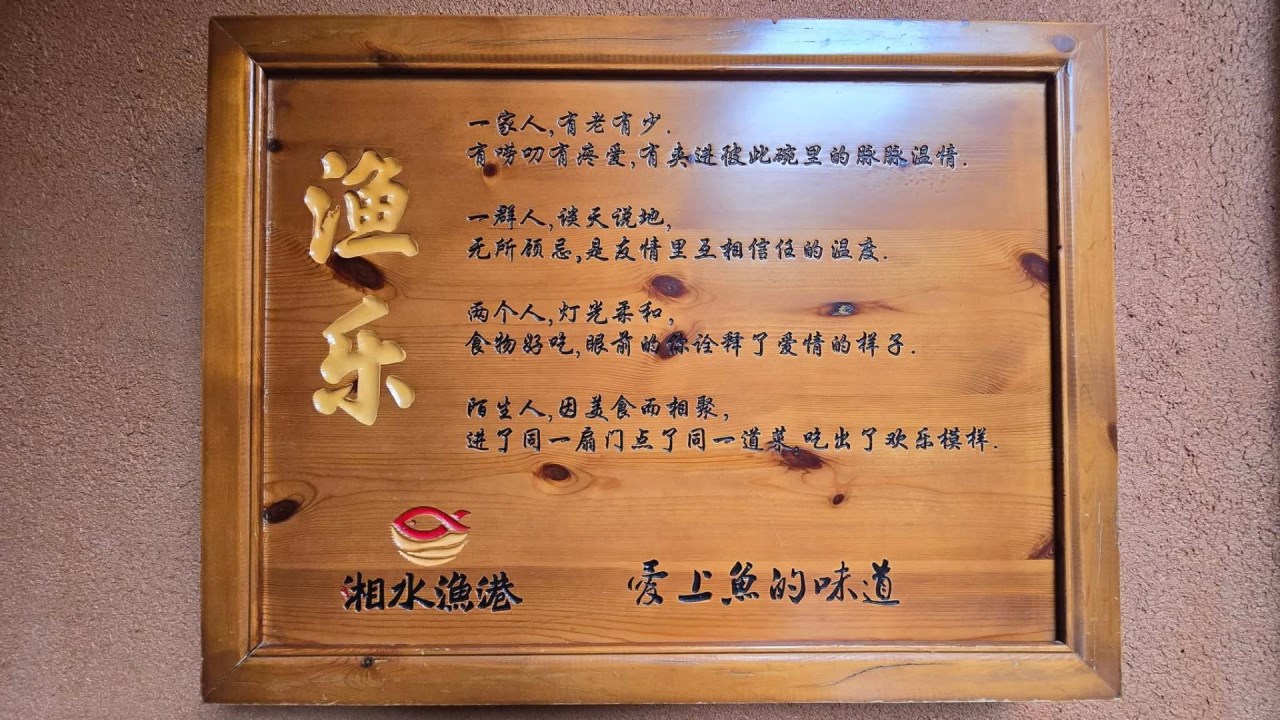 渔乐
一家人,有老有少.
有唠叨有疼爱,有夹进彼此碗里的脉脉温情.
一群人,谈天说地,
无所顾忌,是友情里互相信任的温度.
两个人,灯光柔和,
食物好吃,眼前的你诠释了爱情的样子.
陌生人,因美食而相聚,
进了同一扇门点了同一道菜,吃出了欢乐模样.
湘水漁港
爱上魚的味道